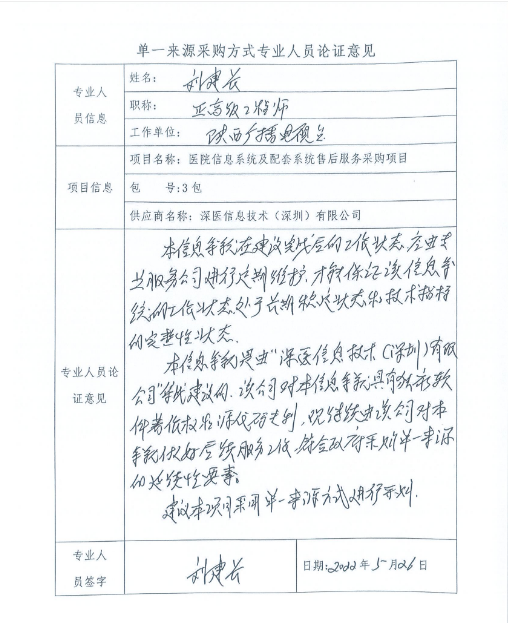 单一来源采购方式专业人员论证意见
专业人
员信息
姓名：刘建长
职称：正高级工程师
工作单位：陕西广播电视台
项目信息
项目名称：医院信息系统及配套系统售后服务采购项目
包 号：3包
供应商名称：深医信息技术（深圳）有限公司
专业人员论
证意见
本信息系统在建设完成后的工作状态，应由专
业服务公司进行定期维护，才能保证该信息系
统的工作状态处于长期稳定状态和技术指标
的完整性状态。
本信息系统是由“深医信息技术（深圳）有限
公司”承建的，该公司对本信息系统具有独立软
件著作权及源代码专利，现继续由该公司对本
系统做好后续服务工作，符合政府采购单一来源
的延续性要求。
建议本项目采用单一来源方式进行采购.
专业人
员签字
刘建长
日期：2022年5月26日